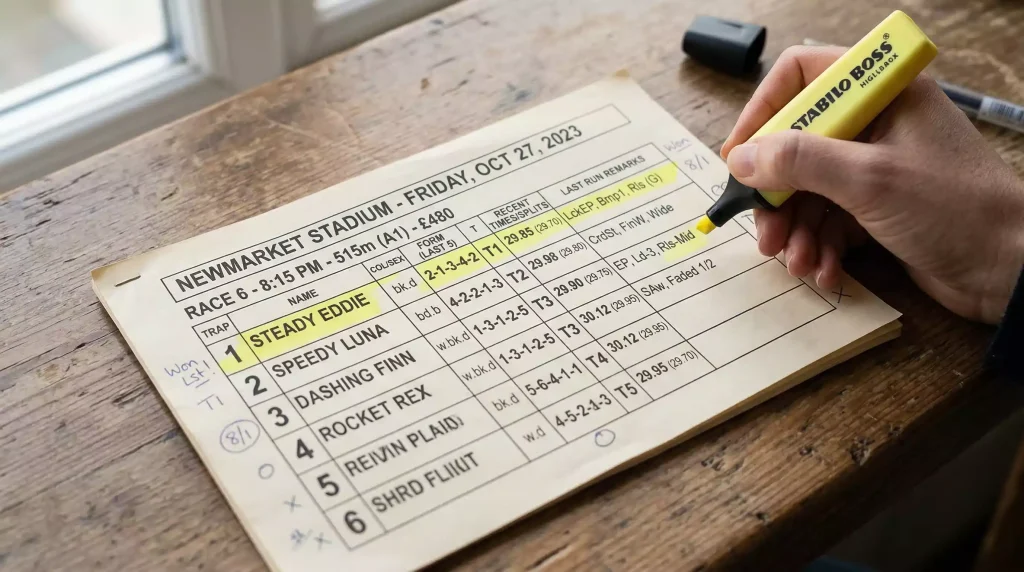 NEWMARKET STADIUM - FRIDAY, OCT 27, 2023
RACE 6 - 8:15 PM - 515m (A1) - £480
TRAP NAME COL/SEX FORM (LAST 5) T RECENT TIMES/SPLITS LAST RUN REMARKS
1 STEADY EDDIE bk.d 2-1-3-4-2 T1 29.85 (29.70) LckEP, Bmp1, Rls (G)
2 SPEEDY LUNA bd.b 4-2-2-1-3 T2 29.98 (29.80) CrdSt, FinW, Wide
3 DASHING FINN w.bk.d 1-3-1-2-5 T3 29.90 (29.75) EP, Ld-3, Rls-Mid
4 ROCKET REX w.bk.d 1-3-1-2-5 T3 30.12 (29.95) SAw, Faded 1/2
5 bk.d 5-6-4-1-1 T4 30.12 (29.95)
6 SHRD w.d 4-5-2-1-3 T5 29.95 (29.70)
Won
8/1
Won
1st!
T1
8/1
STABILO BOSS®